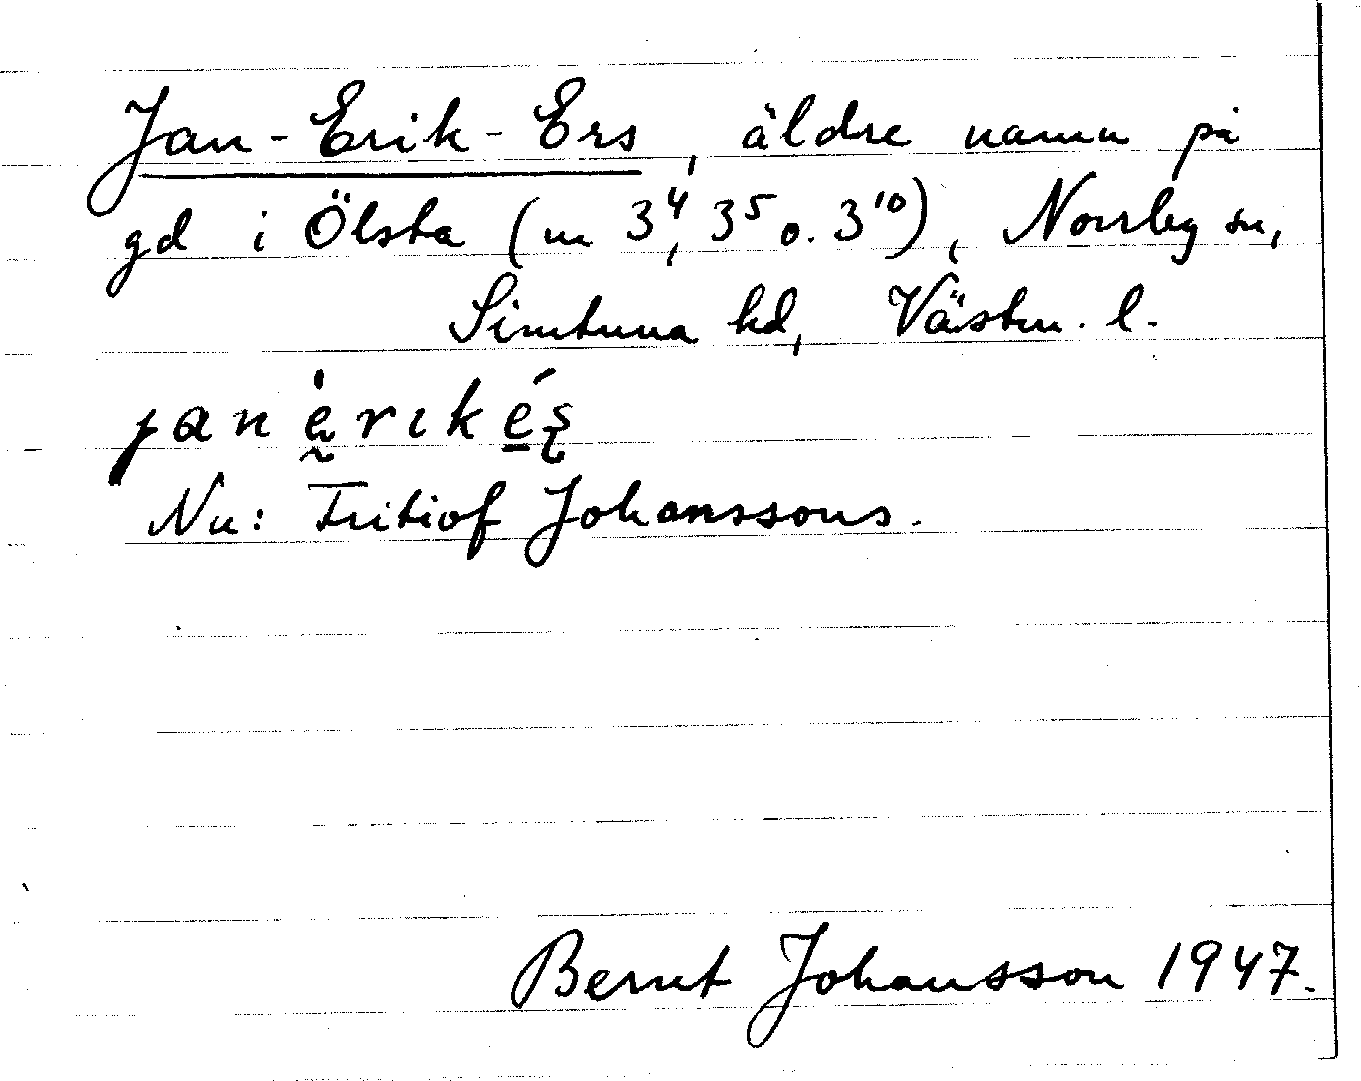 Jan-Erik-Ers, äldre namn på
gd i Ölsta (m 3⁴, 3⁵ o. 3¹⁰), Norrby sn,
Simtuna hd, Västm. l.
jan ḛ̀rıkéş
Nu: Fritiof Johanssons.
Bernt Johansson 1947.